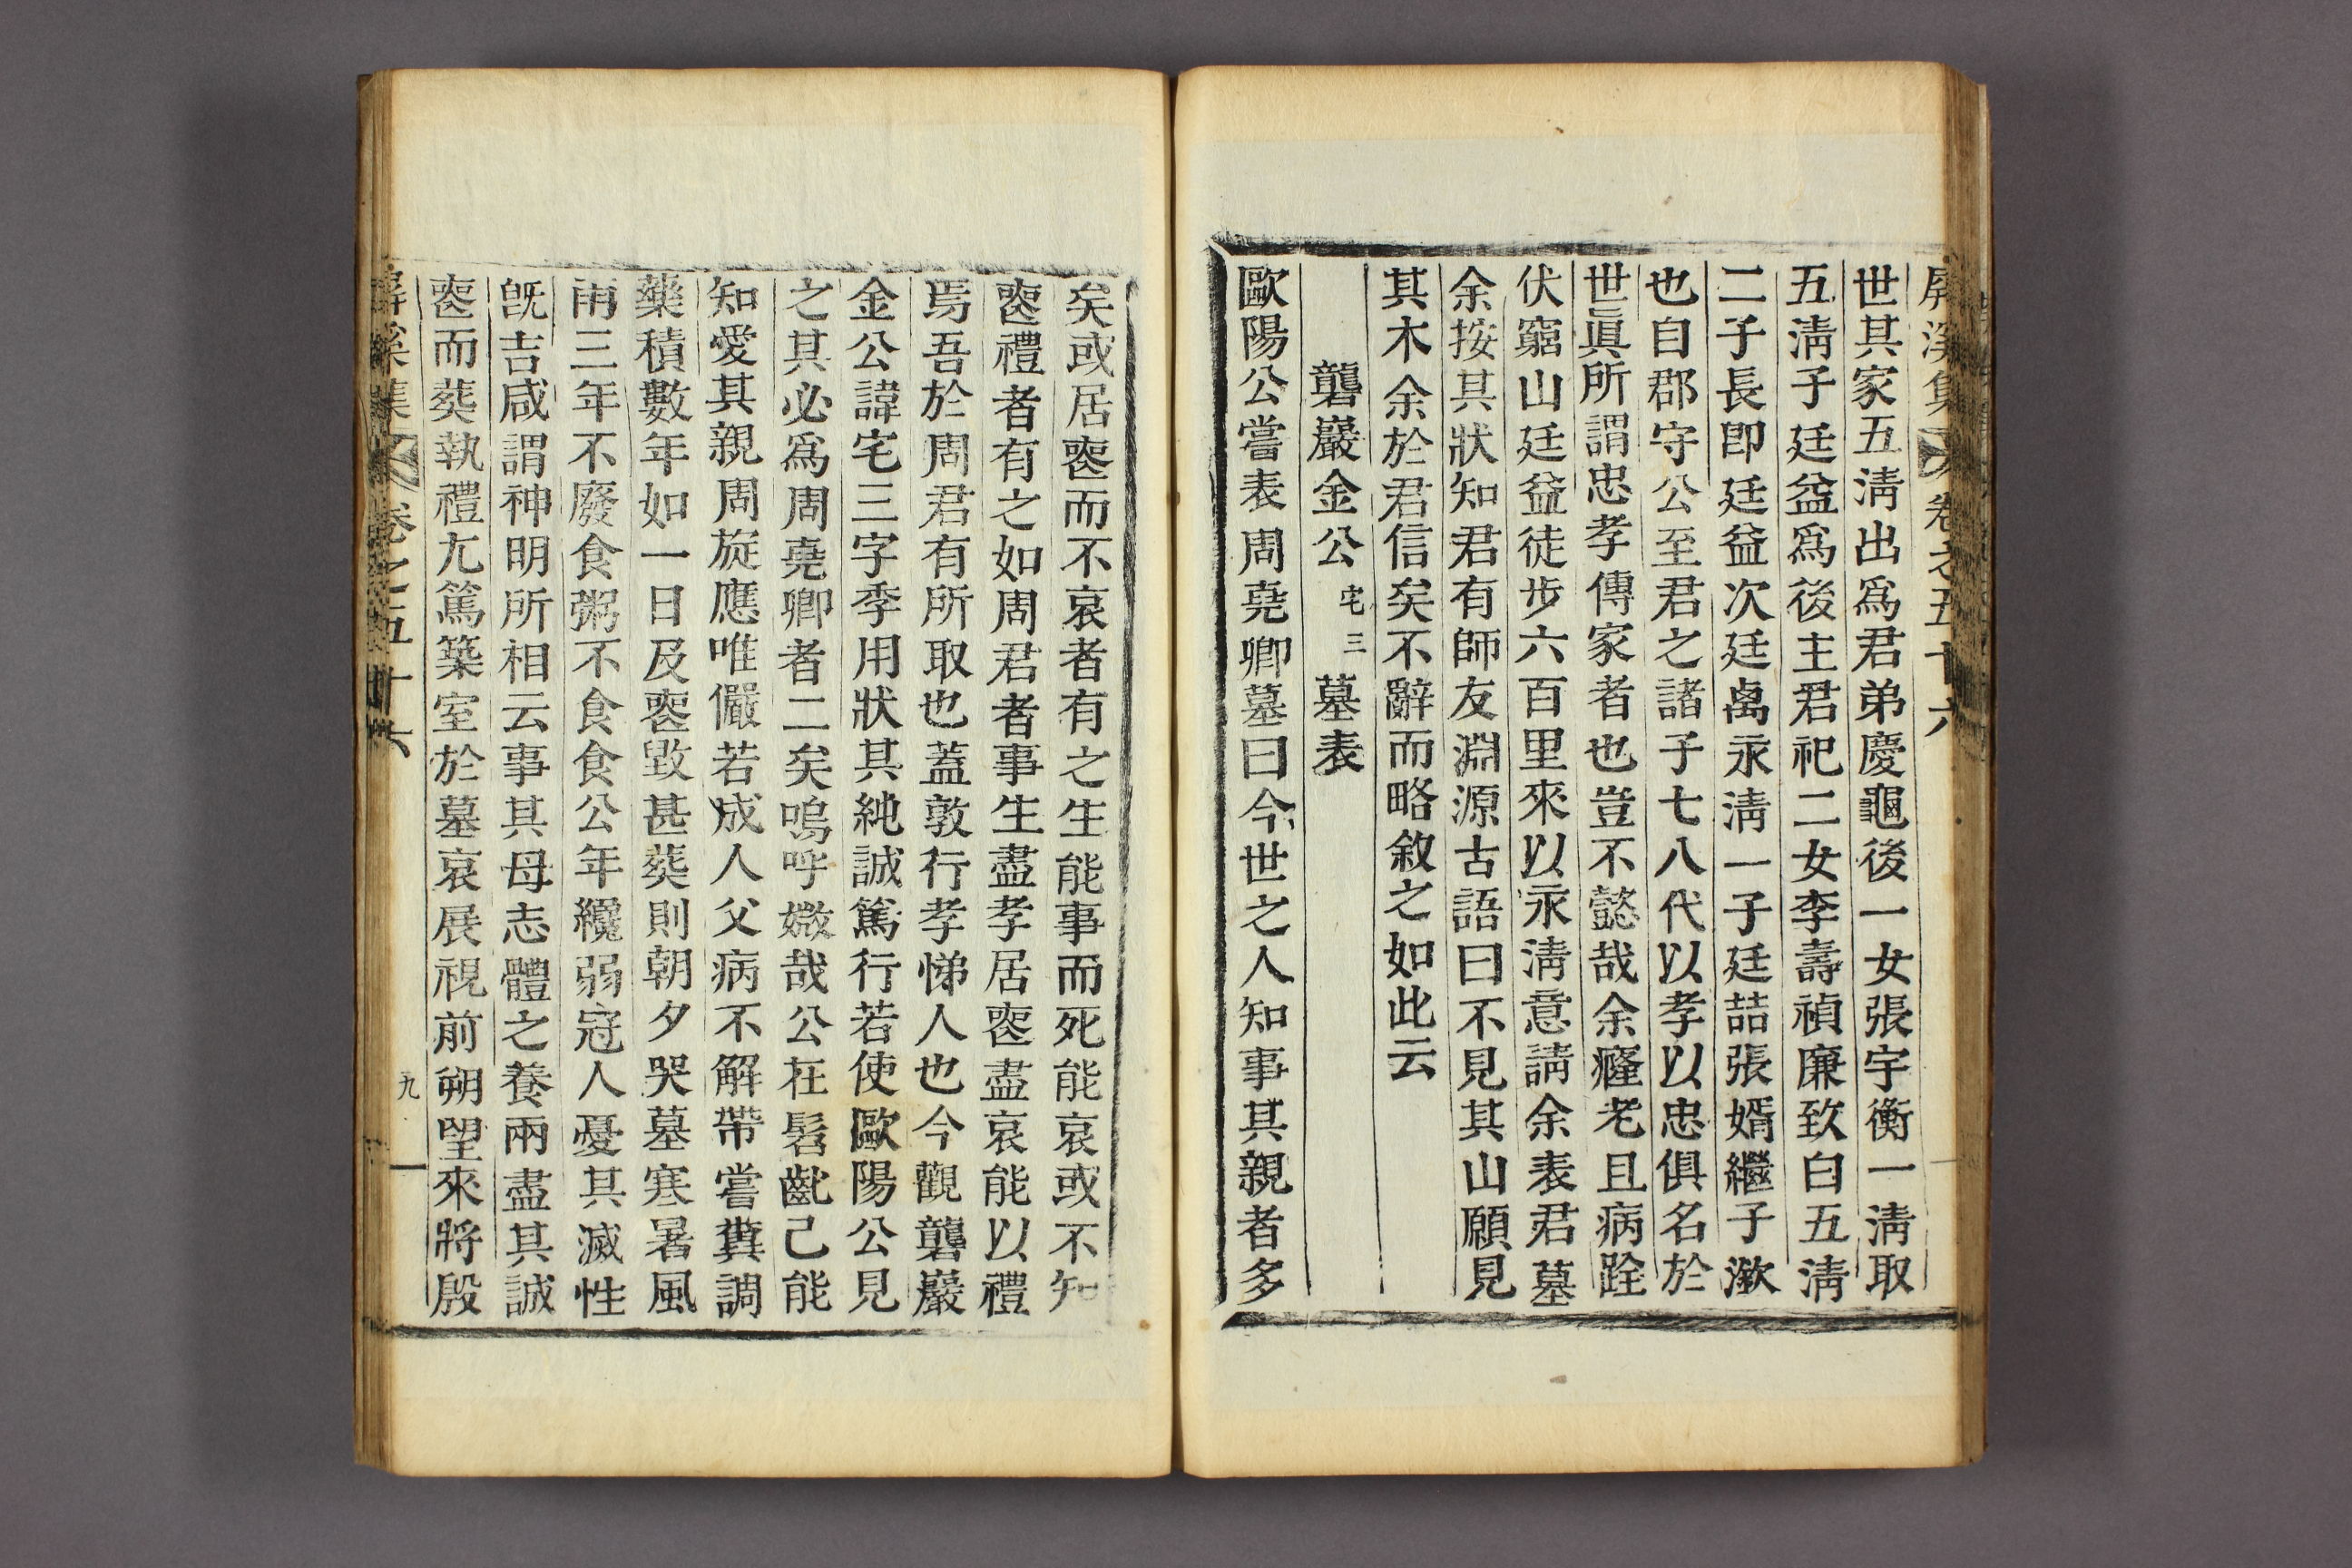 屛溪集 卷之五十六
世其家五淸出爲君弟慶龜後一女張宇衡一淸取
五淸子廷益爲後主君祀二女李壽禎廉致白五淸
二子長卽廷益次廷卨永淸一子廷喆張婿繼子漵
也自郡守公至君之諸子七八代以孝以忠俱名於
世眞所謂忠孝傳家者也豈不懿哉余癃老且病跧
伏窮山廷益徒步六百里來以永淸意請余表君墓
余按其狀知君有師友淵源古語曰不見其山願見
其木余於君信矣不辭而略敘之如此云
聾巖金公 宅三 墓表
歐陽公嘗表周堯卿墓曰今世之人知事其親者多
矣或居喪而不哀者有之生能事而死能哀或不知
喪禮者有之如周君者事生盡孝居喪盡哀能以禮
焉吾於周君有所取也蓋敦行孝悌人也今觀聾巖
金公諱宅三字季用狀其純誠篤行若使歐陽公見
之其必爲周堯卿者二矣嗚呼媺哉公在髫齔己能
知愛其親周旋應唯儼若成人父病不解帶嘗糞調
藥積數年如一日及喪毀甚葬則朝夕哭墓寒暑風
雨三年不廢食粥不食食公年纔弱冠人憂其滅性
旣吉咸謂神明所相云事其母志體之養兩盡其誠
喪而葬執禮尤篤築室於墓哀展視前朔望來將殷
屛溪集 卷之五十六 九